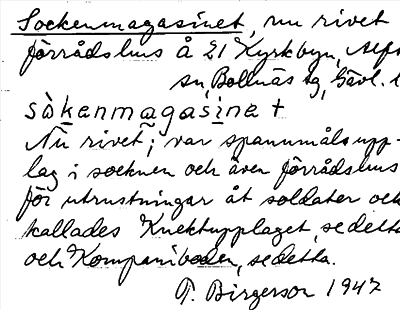 Sockenmagasinet, nu rivet
förrådshus å 21 Kyrkbyn, Alfta
sn, Bollnäs tg, Gävl. l
såkenmagasinet
Nu rivet; var spannmålsupp-
lag i socknen och även förrådshus
för utrustningar åt soldater och
kallades Knektupplaget, se detta
och Kompaniboden, se detta.
P. Birgerson 1947